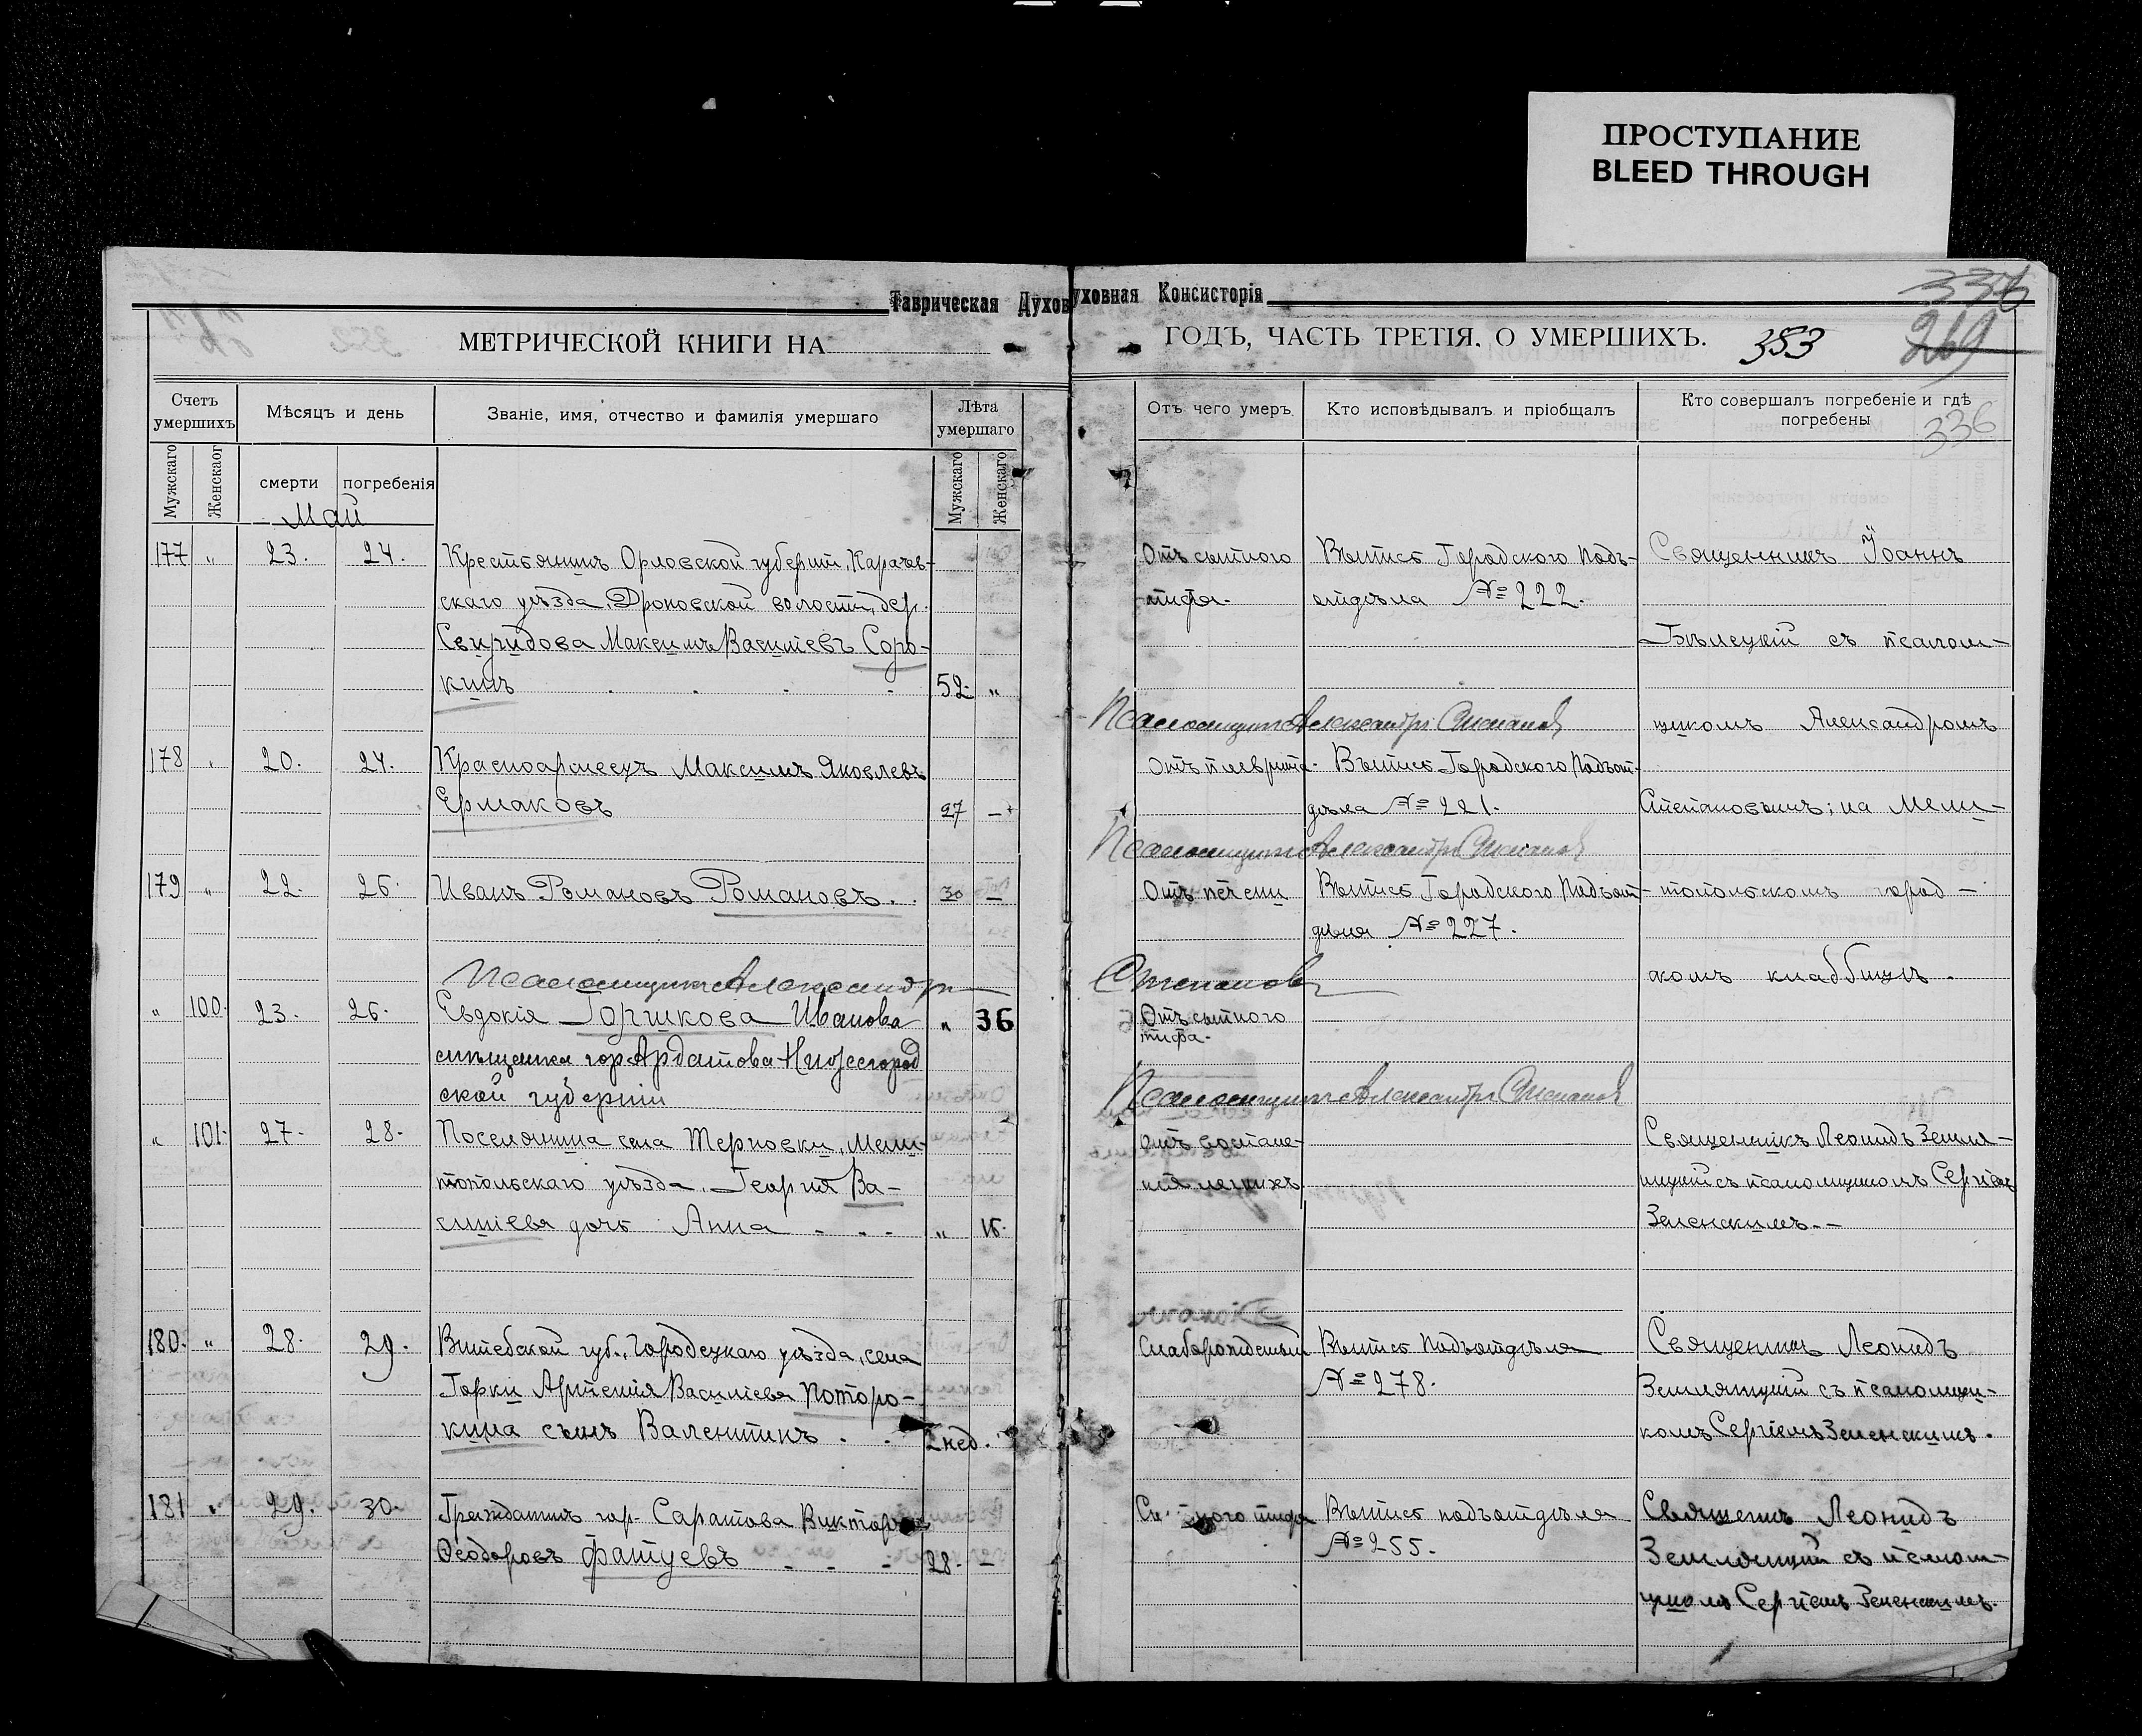 ПРОСТУПАНИЕ
BLEED THROUGH
Таврическая Духов
уховная Консисторія
МЕТРИЧЕСКОЙ КНИГИ НА
ГОДЪ, ЧАСТЬ ТРЕТІЯ. О УМЕРШИХЪ.
353
336
269
336
Счетъ умершихъ
Мѣсяцъ и день
Званіе, имя, отчество и фамилія умершаго
Лѣта умершаго
Мужскаго
Женскаог
смерти
погребенія
Мужскаго
Женскаго
Отъ чего умеръ.
Кто исповѣдывалъ и пріобщалъ
Кто совершалъ погребеніе и гдѣ
погребены
Май
177 " 23. 24. Крестьянинъ Орловской губерніи, Карачев-
скаго уѣзда, Дроновской волости, дер.
Свиридова Максимъ Васильевъ Соро-
кинъ . . . . 52. "
Отъ сыпного
тифа.
Выпись Городского Подъ-
отдѣла № 222.
Священникъ Іоаннъ
Бѣлецкій съ псалом-
Псаломщикъ Александръ Степановъ
щикомъ Александромъ
178 20. 24. Красноармеецъ Максимъ Яковлевъ
Ермаковъ 27 -
Отъ плеврита.
Выпись Городского Подъот-
дѣла № 221.
Степановымъ; на Мели-
Псаломщикъ Александръ Степановъ
179 " 22. 26. Иванъ Романовъ Романовъ . . 30 -
Отъ печени
Выпись Городского Подъот-
дѣла № 227.
топольскомъ город-
Псаломщикъ Александръ
Степановъ
скомъ кладбищѣ.
" 100. 23. 26. Евдокія Горшкова Иванова " 36
мѣщанка гор. Ардатова Нижегород
ской губерніи
Отъ сыпного
тифа.
Псаломщикъ Александръ Степановъ
" 101. 27. 28. Поселянина села Терновки, Мели-
топольскаго уѣзда, Георгія Ва-
силіева дочь Анна - - - "
Отъ воспале-
нія легкихъ
Священникъ Леонидъ Земля-
ницкій съ псаломщикомъ Сергіемъ
Зеленскимъ.-
180. " 28. 29. Витебской губ., Городецкаго уѣзда, села
Горки Артемія Василіева Поторо-
кина сынъ Валентинъ . . 2 нед.
Слаборожденный
Выпись Подъотдѣла
№ 278.
Священникъ Леонидъ
съ псаломщи-
комъ Сергіемъ Зеленскимъ.
181 " 29. 30. Гражданинъ гор. Саратова Викторъ
Ѳеодоровъ - - - 28. -
тифа
Выпись подъотдѣла
№ 255.
Священникъ Леонидъ
съ псалом-
щикомъ Сергіемъ Зеленскимъ.